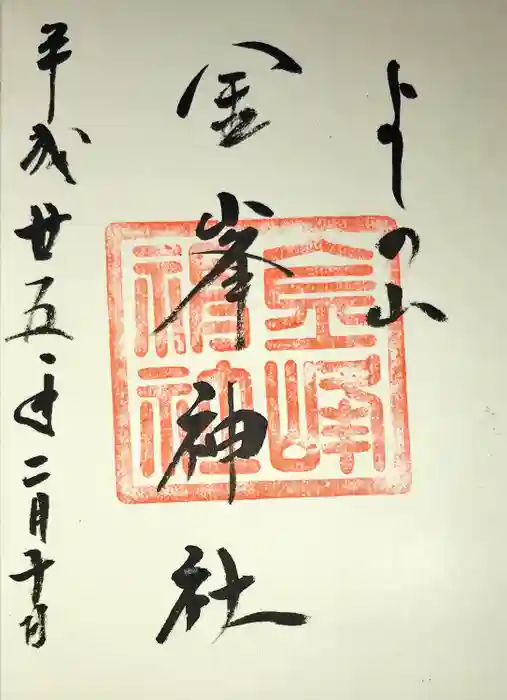 よしの山
金峯神社
平成廿五年二月十日
金峰神社